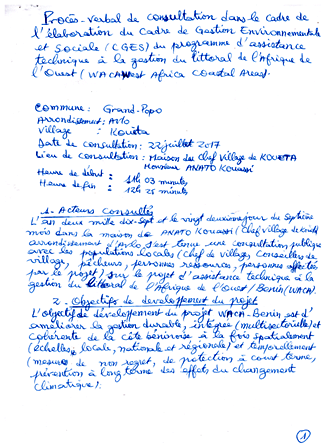 Procès-verbal de consultation dans le cadre de
l'élaboration du Cadre de Gestion Environnementale
et Sociale (CGES) du programme d'assistance
technique à la gestion du littoral de l'Afrique de
l'Ouest (WACA West Africa Coastal Areas).
Commune : Grand-Popo
Arrondissement : Avlo
Village : Kouéta
Date de consultation : 22 juillet 2017
Lieu de consultation : Maison du Chef Village de KOUETA
Monsieur ANATO Kouassi
Heure de début : 11h 03 minutes
Heure de fin : 12h 25 minutes
1. Acteurs Consultés
L'an deux mille dix-sept et le vingt deuxième jour du septième
mois dans la maison de ANATO Kouassi (Chef village de Kouéta
arrondissement d'Avlo s'est tenue une consultation publique
avec les populations locales (Chef de village, Conseillers de
village, pêcheurs, personnes ressources, personnes affectées
par le projet) sur le projet d'assistance technique à la
gestion du littoral de l'Afrique de l'Ouest / Bénin (WACA).
2. Objectifs de développement du projet
L'objectif de développement du projet WACA-Bénin est d'
améliorer la gestion durable, intégrée (multisectorielle) et
cohérente de la côte béninoise à la fois spatialement
(échelles locale, nationale et régionale) et temporellement
(mesures de non regret, de protection à court terme,
prévention à long terme des effets du changement
climatique).
1